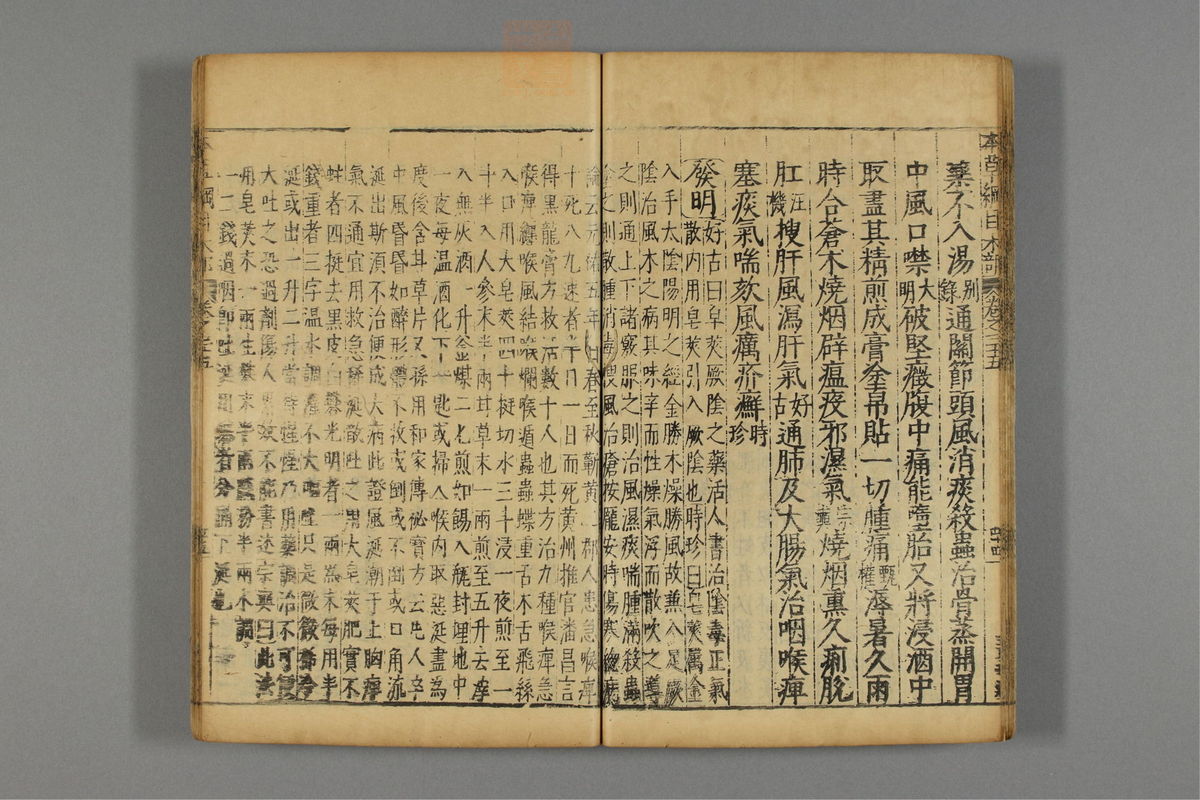 本草綱目木部 卷之三十五
藥不入湯別錄通關節頭風消痰殺蟲治骨蒸開胃
中風口噤大明破堅癥腹中痛能墮胎又將浸酒中
取盡其精煎成膏塗帛貼一切腫痛甄權溽暑久雨
時合蒼朮燒烟辟瘟疫邪濕氣宗奭燒烟熏久痢脫
肛汪機搜肝風瀉肝氣好古通肺及大腸氣治咽喉痺
塞痰氣喘欬風癘疥癬時珍
發明好古曰皁莢厥陰之藥活人書治陰毒正氣
散內用皂莢引入厥陰也時珍曰皂莢屬金
入手太陰陽明之經金勝木燥勝風故兼入足厥
陰治風木之病其味辛而性燥氣浮而散吹之導
之則通上下諸竅服之則治風濕痰喘腫滿殺蟲
塗之則散腫消毒搜風治瘡按龎安時傷寒總病
論云元祐五年自春至秋蘄黃二郡人患急喉痺
十死八九速者半日一日而死黃州推官潘昌言
得黑龍膏方救活數十人也其方治九種喉痺急
喉痺纏喉風結喉爛喉遁蟲蟲蝶重舌木舌飛絲
入口用大皂莢四十挺切水三斗浸一夜煎至一
斗半入人參末半兩甘草末一兩煎至五升去滓
入無灰酒一升釜煤二匕煎如餳入瓶封埋地中
一夜每溫酒化下一匙或掃入喉內取惡涎盡爲
度後含甘草片又孫用和家傳祕寶方云凢人卒
中風昏昏如醉形體不收或倒或不倒或口角流
涎出斯須不治便成大病此證風涎潮于上胸痺
氣不通宜用救急稀涎散吐之用大皂莢肥實不
蛀者四挺去黑皮白礬光明者一兩爲末每用半
錢重者三字溫水調灌不大嘔吐只是微微稀冷
涎或出一升二升當待惺惺乃用藥調治不可便
大吐之恐過劑傷人累效不能書述宗奭曰此法
用皂莢末一兩生礬末半兩膩粉半兩水調
一二錢過咽即吐涎用礬者分膈下涎也